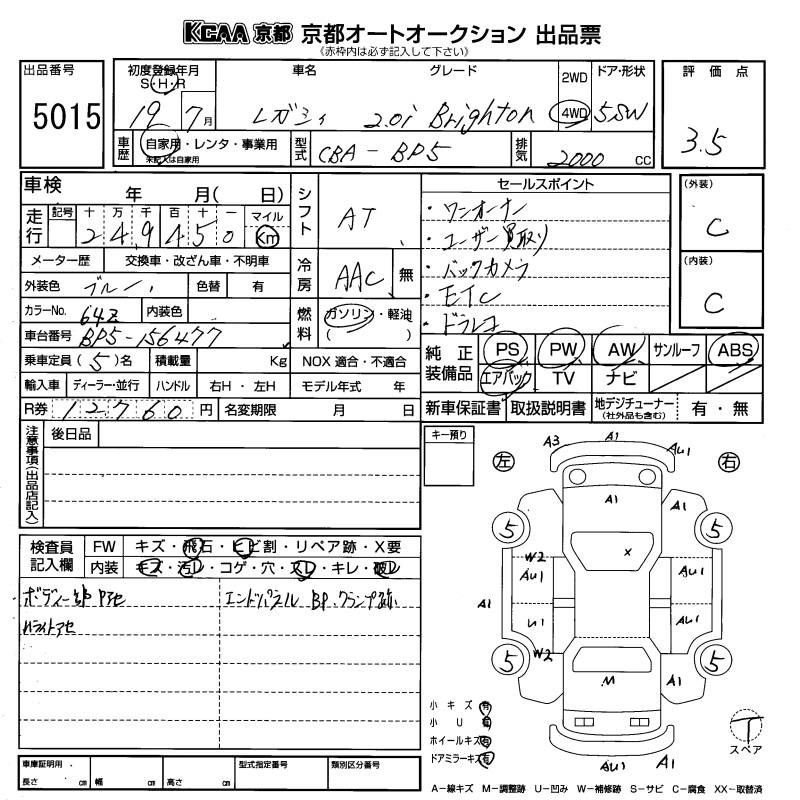 KCAA 京都 京都オートオークション 出品票
《赤枠内は必ず記入して下さい》
出品番号 5015
初度登録年月 S・H・R 19 7月
車名 レガシィ
グレード 2.0i Brighton
2WD 4WD
ドア・形状 5SW
評価点 3.5
車歴 自家用・レンタ・事業用
未記入は自家用
型式 CBA-BP5
排気 2000 CC
車検 年 月( 日)
シフト AT
セールスポイント
・ワンオーナー
・ユーザー買取り
・バックカメラ
・ETC
・ドラレコ
(外装) C
(内装) C
走行 記号 十 万 千 百 十 一 マイル
249450 Km
メーター歴 交換車・改ざん車・不明車
冷房 AAC 無
外装色 ブルー 色替 有
カラーNo. 64Z 内装色
燃料 ガソリン・軽油
( )
車台番号 BP5-156477
乗車定員(5)名 積載量 Kg NOX 適合・不適合
純正装備品 PS PW AW サンルーフ ABS
エアバック TV ナビ
輸入車 ディーラー・並行 ハンドル 右H・左H モデル年式 年
R券 12760円 名変期限 月 日
新車保証書 取扱説明書 地デジチューナー(社外品も含む) 有・無
注意事項(出品店記入)
後日品
キー預り
左 右
A3 A1 AU1
A1 A1
5 5
X
W2
AU1 AU1
A1
U1 AU1
W2
5 5
M A1
AU1 A1
検査員記入欄 FW キズ・飛石・ヒビ割・リペア跡・X要
内装 キズ・汚レ・コゲ・穴・スレ・キレ・破レ
エンドパネル BP、クランプ跡
小キズ 有
小U 有
ホイールキズ 有
ドアミラーキズ 有
T
スペア
車庫証明用 長さ cm 幅 cm 高さ cm
型式指定番号 類別区分番号
A-線キズ M-調整跡 U-凹み W-補修跡 S-サビ C-腐食 XX-取替済